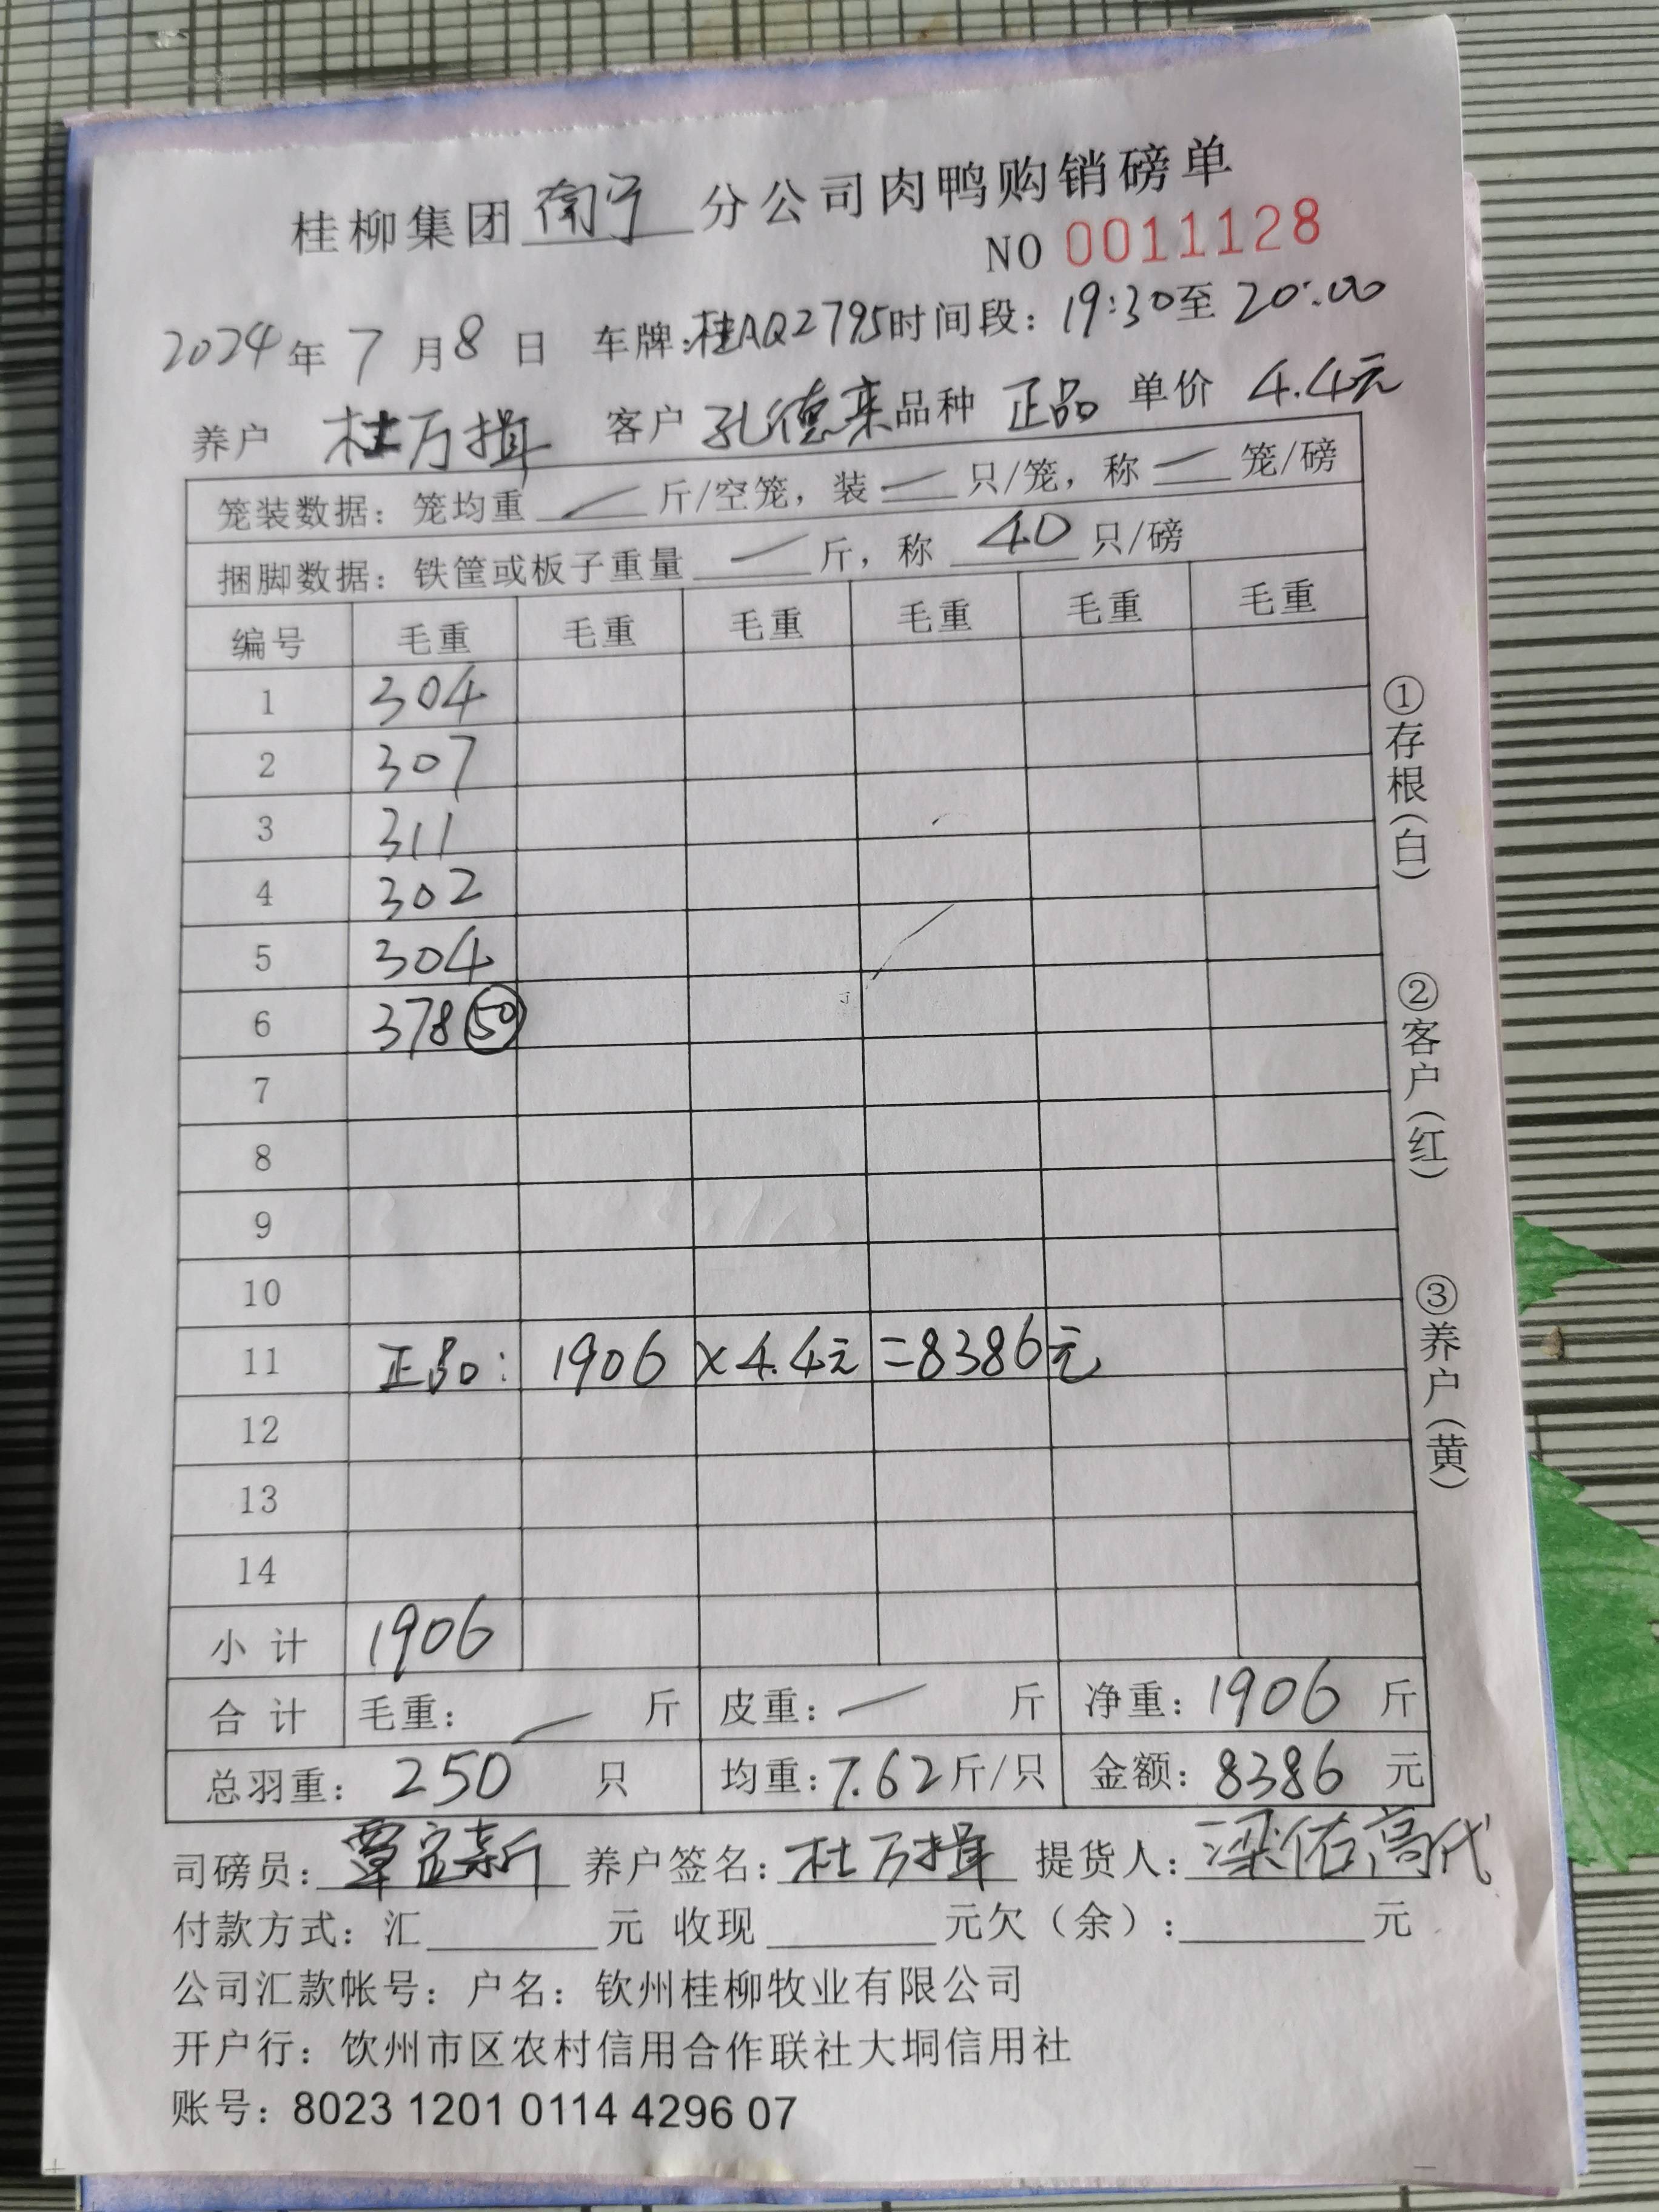 桂柳集团南宁分公司肉鸭购销磅单
NO 0011128
2024年7月8日 车牌:桂AQ2795时间段：19:30至20:00
养户 杜万揖 客户 孔德来 品种 正品 单价 4.4元
笼装数据：笼均重 — 斤/空笼，装 — 只/笼，称 — 笼/磅
捆脚数据：铁筐或板子重量 — 斤，称 40 只/磅
编号 毛重 毛重 毛重 毛重 毛重 毛重
1 304
2 307
3 311
4 302
5 304
6 378 50
7
8
9
10
11 正品: 1906 ×4.4元 =8386元
12
13
14
小计 1906
合计 毛重: — 斤 皮重: — 斤 净重: 1906 斤
总羽重: 250 只 均重:7.62斤/只 金额: 8386 元
司磅员: 覃定新 养户签名: 杜万揖 提货人: 梁佑高代
付款方式：汇 元 收现 元欠（余）: 元
公司汇款帐号：户名：钦州桂柳牧业有限公司
开户行：饮州市区农村信用合作联社大垌信用社
账号：8023 1201 0114 4296 07
①存根(白)
②客户(红)
③养户(黄)